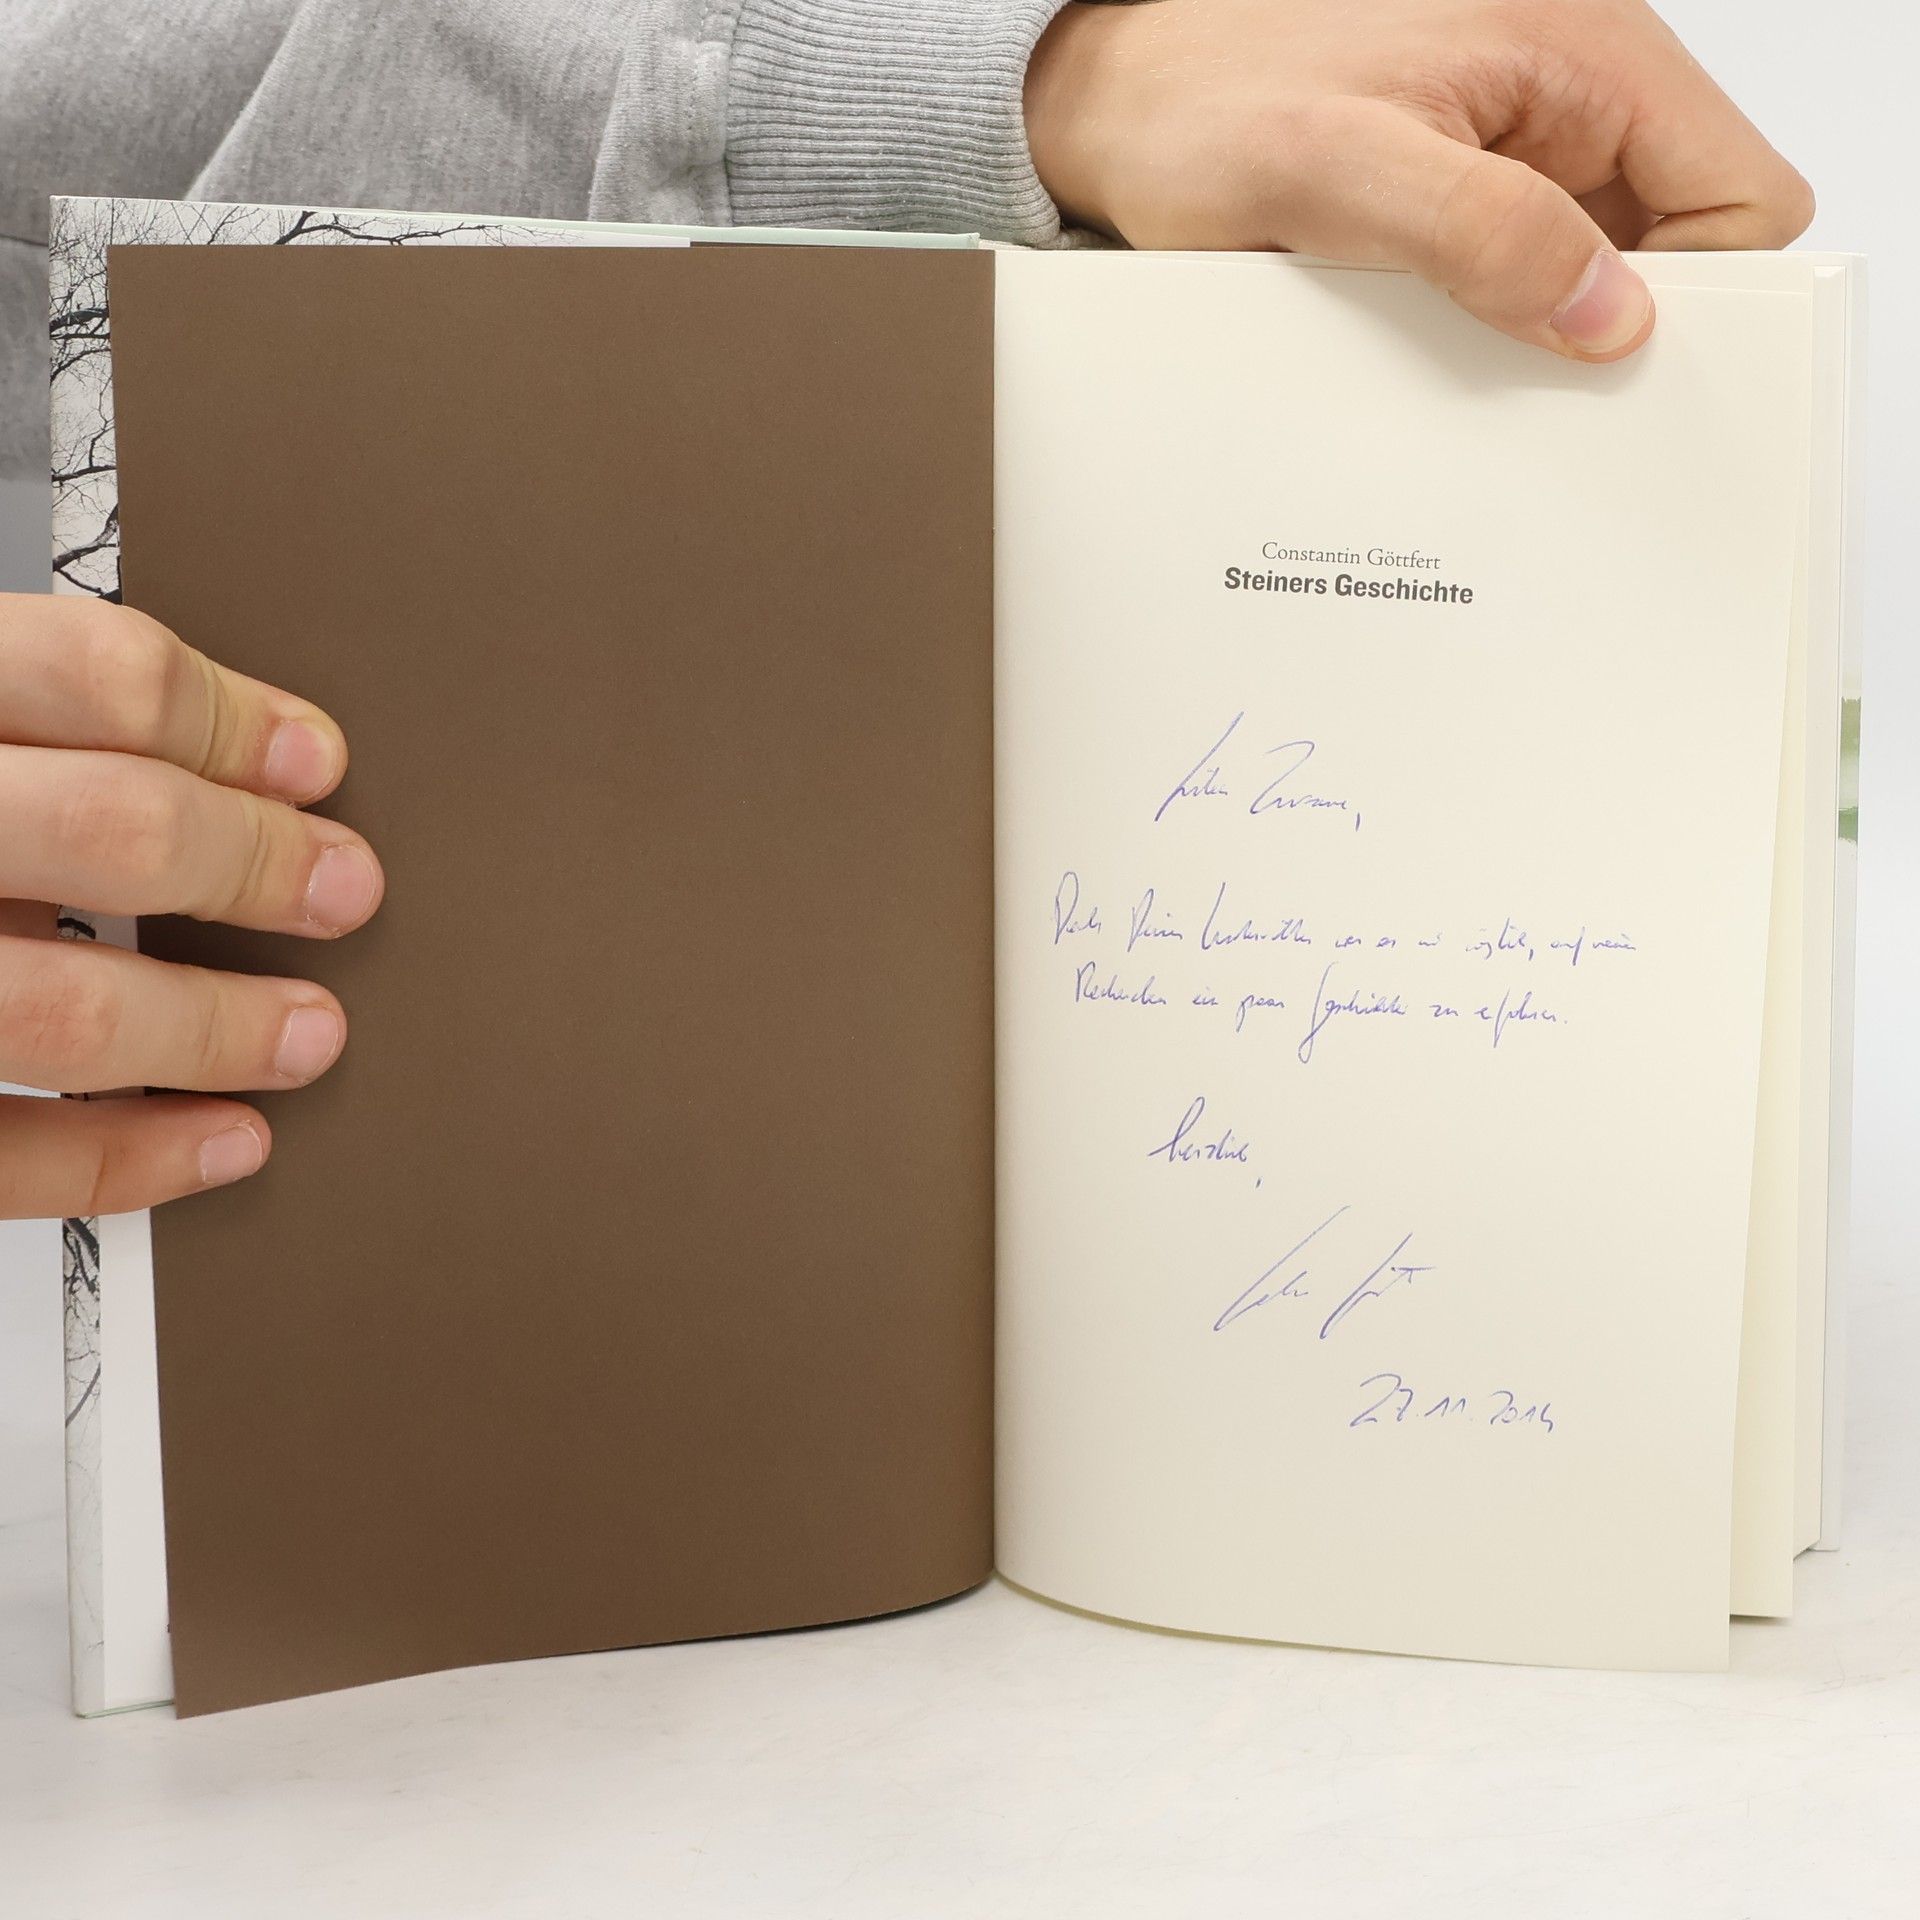 Constantin Göttfert
Steiners Geschichte
Dank Deiner war es mir möglich, auf meinen
Recherchen ein paar Geschichten zu erfahren.
herzlich,
27.11.2014